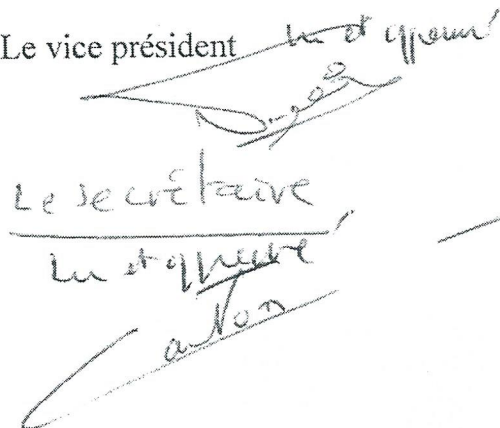 Le vice président lu et approuvé
Le secrétaire
lu et approuvé